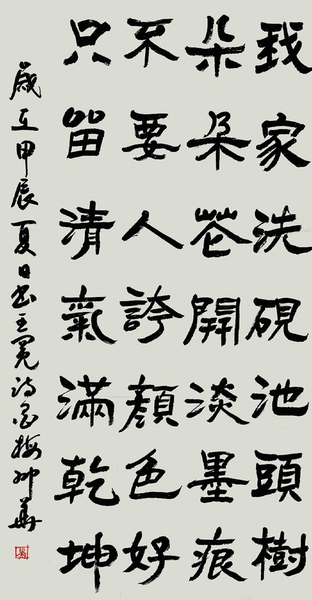 我家洗硯池頭樹
朵朵花開淡墨痕
不要人誇顏色好
只留清氣滿乾坤
歲在甲辰夏日書王冕詩墨梅